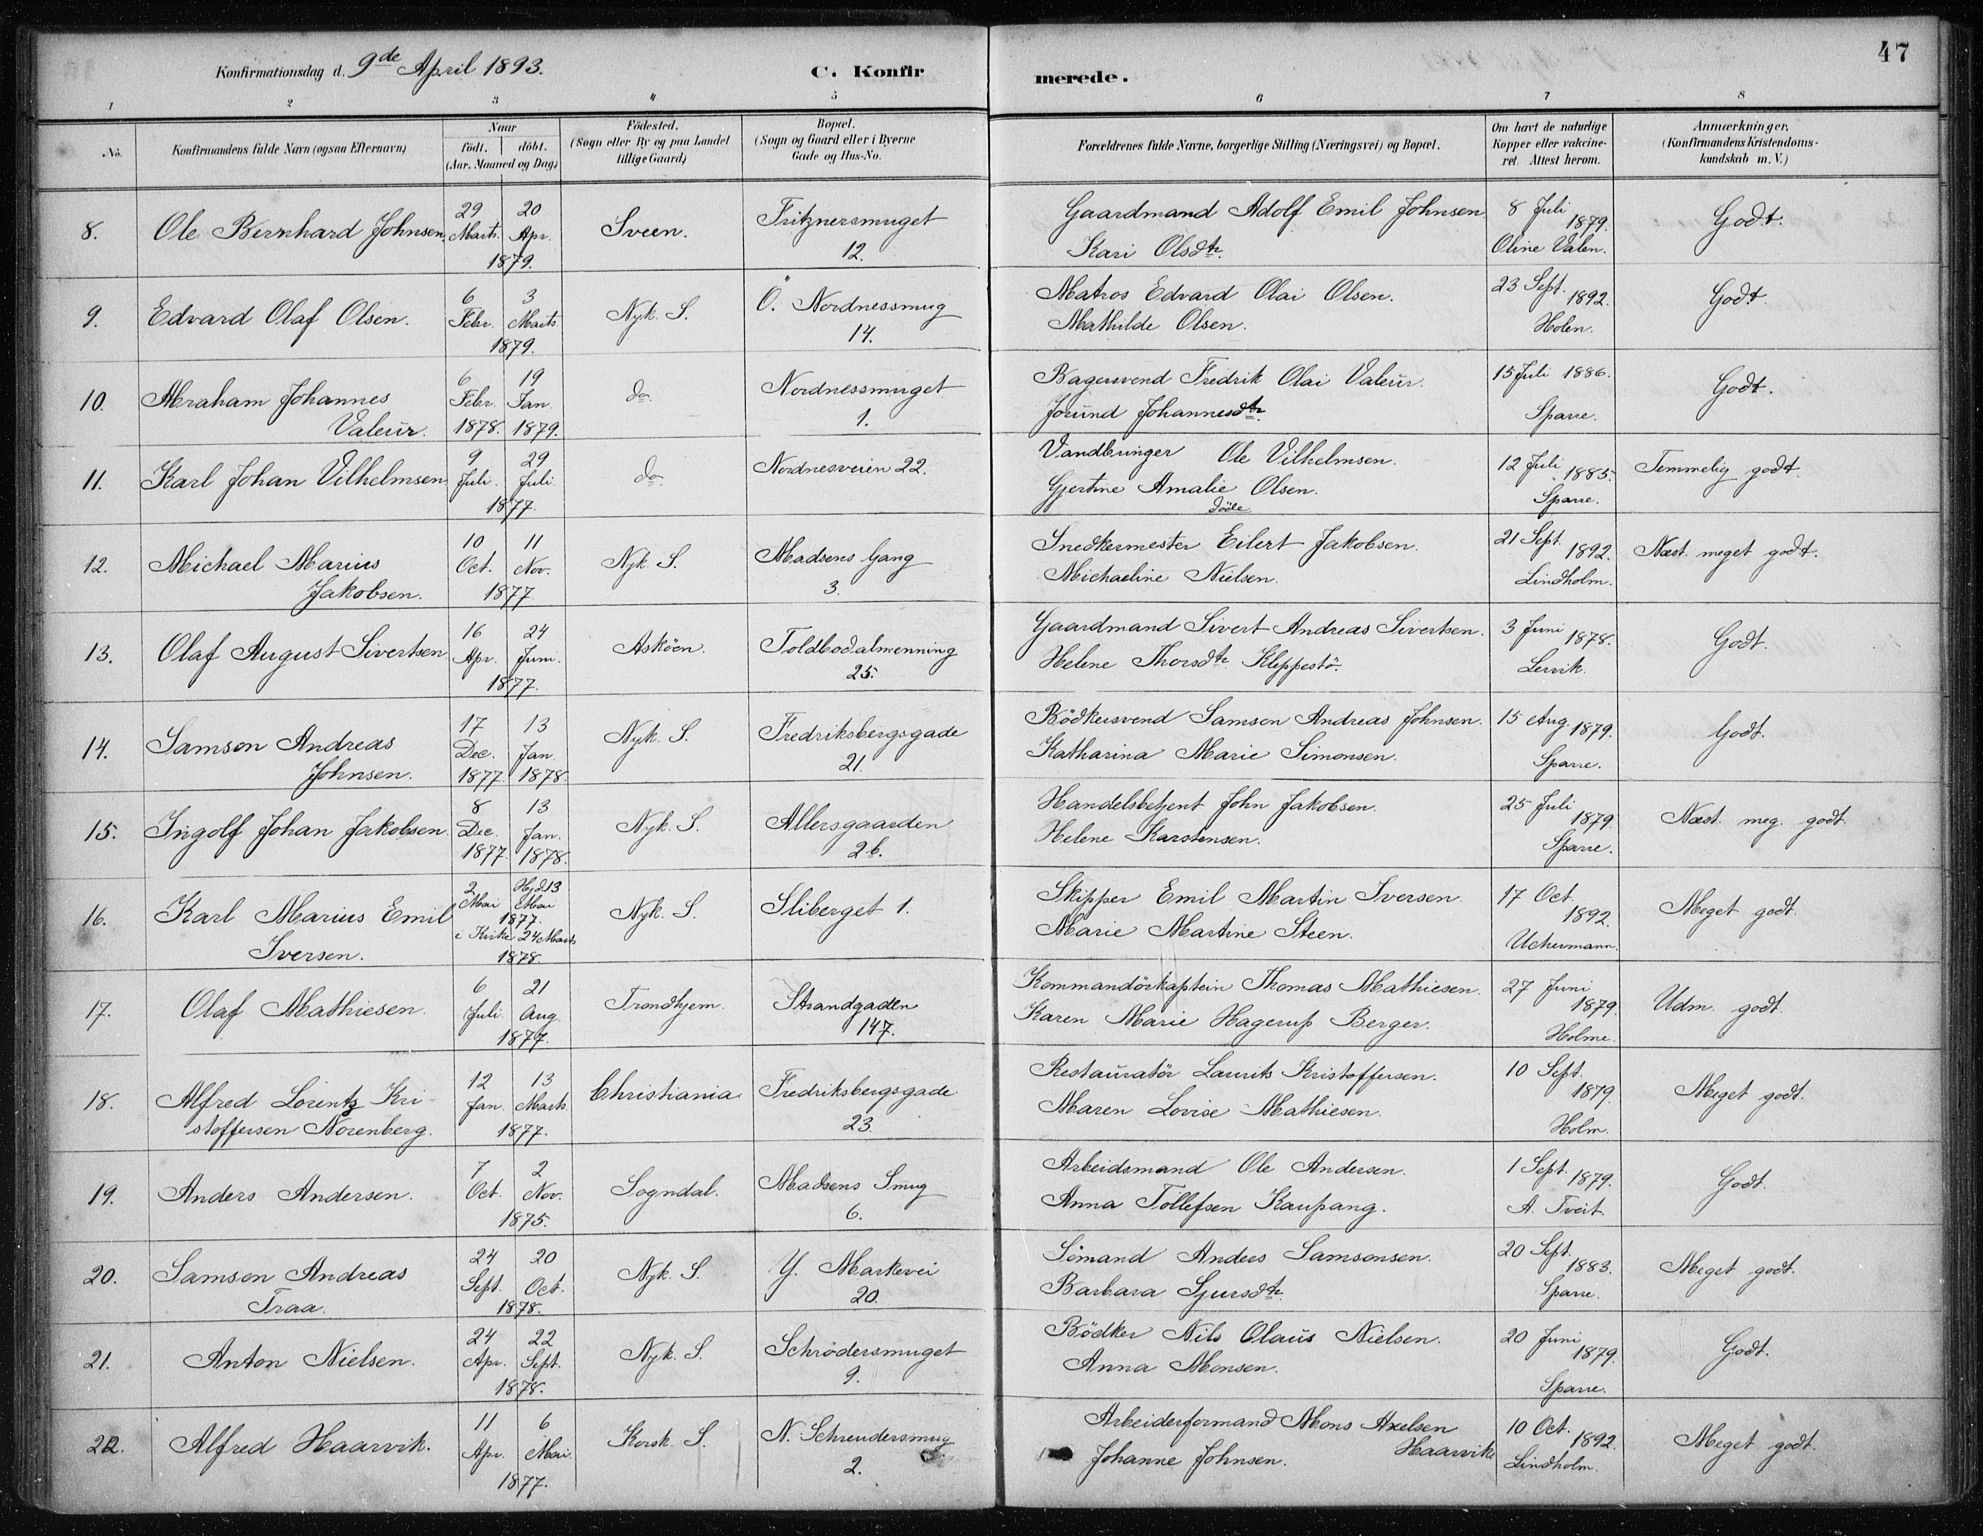 Konfirmationsdag d. 9de April 1893.
C. Konfirmerede.
47
1 2 3 4 5 6 7 8
No.
Konfirmandens fulde Navn (ogsaa Efternavn)
Naar
födt. döbt.
(Aar, Maaned og Dag)
Födested.
(Sogn eller By og paa Landet
tillige Gaard)
Bopæl.
(Sogn og Gaard eller i Byerne
Gade og Hus-No.
Forældrenes fulde Navne, borgerlige Stilling (Næringsvei) og Bopæl.
Om havt de naturlige
Kopper eller vakcine-
ret. Attest herom.
Anmærkninger.
(Konfirmandens Kristendoms-
kundskab m. V.)
8. Ole Bernhard Johnsen. 29 Marts 20 Apr. 1879. Sveen. Fritznersmuget 12. Gaardmand Adolf Emil Johnsen Kari Olsdtr. 8 Juli 1879. Oline Valen. Godt.
9. Edvard Olaf Olsen. 6 Febr. 3 Marts 1879. Nyk. S. Ö. Nordnessmug 14. Matros Edvard Olai Olsen. Mathilde Olsen. 23 Sept. 1892. Holen. Godt.
10. Abraham Johannes Valeur. 6 Febr. 1878. 19 Jan. 1879. do. Nordnessmuget 1. Bagersvend Fredrik Olai Valeur. Jorund Johannesdtr 15 Juli 1886. Sparre. Godt.
11. Karl Johan Vilhelmsen 9 Juli. 29 Juli 1877. do. Nordnesveien 22. Vandbringer Ole Vilhelmsen. Gjertine Amalie Olsen. döde 12 Juli 1885. Sparre. Temmelig godt.
12. Michael Marius Jakobsen. 10 Oct. 11 Nov. 1877. Nyk. S. Madsens Gang 3. Snedkermester Eilert Jakobsen. Michaeline Nielsen. 21 Sept. 1892. Lindholm. Næst. meget godt.
13. Olaf August Sivertsen 16 Apr. 24 Juni. 1877. Asköen. Toldbodalmenning 25. Gaardmand Sivert Andreas Sivertsen. Helene Thorsdtr Kleppestö. 3 Juni 1878. Lervik. Godt.
14. Samson Andreas Johnsen. 17 Dec. 1877. 13 Jan. 1878. Nyk. S. Fredriksbergsgade 21. Bödkersvend Samson Andreas Johnsen. Katharina Marie Simonsen. 15 Aug. 1879. Sparre. Godt.
15. Ingolf Johan Jakobsen 8 Dec. 1877. 13 Jan. 1878. Nyk. S. Allersgaarden 2b. Handelsbetjent John Jakobsen. Helene Karstensen. 25 Juli 1879. Sparre. Næst. meg. godt.
16. Karl Marius Emil Iversen. 2 Mai Hjd. 13 Mai 1877. i Kirke 24 Marts 1878. Nyk. S. Sliberget 1. Skipper Emil Martin Iversen. Marie Martine Steen. 17 Oct. 1892. Uchermann. Meget godt.
17. Olaf Mathiesen. 6 Juli 21 Aug. 1877. Trondhjem. Strandgaden 147. Kommandörkaptein Thomas Mathiesen. Karen Marie Hagerup Berger. 27 Juni 1879. Holme. Udm. godt.
18. Alfred Lorentz Kristoffersen Norenberg. 12 Jan. 13 Marts 1877. Christiania Fredriksbergsgade 23. Restauratör Laurits Kristoffersen. Maren Lovise Mathiesen. 10 Sept. 1879. Holm. Meget godt.
19. Anders Andersen. 7 Oct. 2 Nov. 1875. Sogndal. Madsens Smug 6. Arbeidsmand Ole Andersen. Anna Tollefsen Kaupang. 1 Sept. 1879. A. Tveit. Godt.
20. Samson Andreas Traa. 24 Sept. 20 Oct. 1878. Nyk. S. Y. Markevei 20. Sömand Anders Samsonsen. Barbara Sjursdtr. 20 Sept. 1883. Sparre. Meget godt.
21. Anton Nielsen. 24 Apr. 22 Sept. 1878. Nyk. S. Schrödersmuget 9. Bödker Nils Olaus Nielsen. Anna Monsen. 20 Juni 1879. Sparre. Godt.
22. Alfred Haarvik. 11 Apr. 6 Mai 1877. Korsk. S. N. Schreudersmug 2. Arbeiderformand Mons Axelsen Haarvik Johanne Johnsen. 10 Oct. 1892. Lindholm. Meget godt.